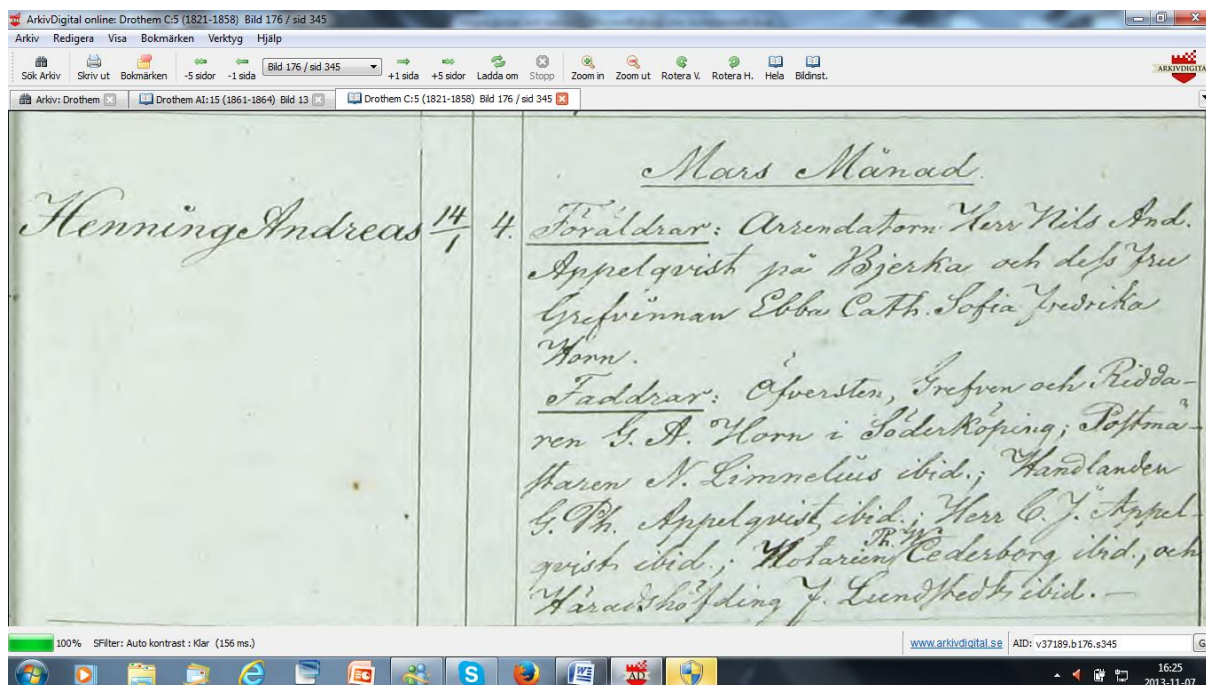 ArkivDigital online: Drothem C:5 (1821-1858) Bild 176 / sid 345
Arkiv Redigera Visa Bokmärken Verktyg Hjälp
Sök Arkiv Skriv ut Bokmärken -5 sidor -1 sida Bild 176 / sid 345 +1 sida +5 sidor Ladda om Stopp Zoom in Zoom ut Rotera V. Rotera H. Hela Bildinst. ARKIVDIGITAL
Arkiv: Drothem Drothem AI:15 (1861-1864) Bild 13 Drothem C:5 (1821-1858) Bild 176 / sid 345
Mars Månad.
Henning Andreas 14/1 4. Föräldrar: Arrendatorn Herr Nils And.
Appelqvist på Bjerka och dess Fru
Grefvinnan Ebba Cath. Sofia Fredrika
Horn.
Faddrar: Öfversten, Grefven och Ridda-
ren G. A. Horn i Söderköping; Postmä-
staren N. Limnelius ibid.; Handlanden
G. Ph. Appelqvist ibid.; Herr C. J. Appel-
qvist ibid.; Notarien Th. Cederborg ibid., och
Häradshöfding J. Lundstedt ibid. —
100% SFilter: Auto kontrast : Klar (156 ms.) www.arkivdigital.se AID: v37189.b176.s345 G
16:25
2013-11-07